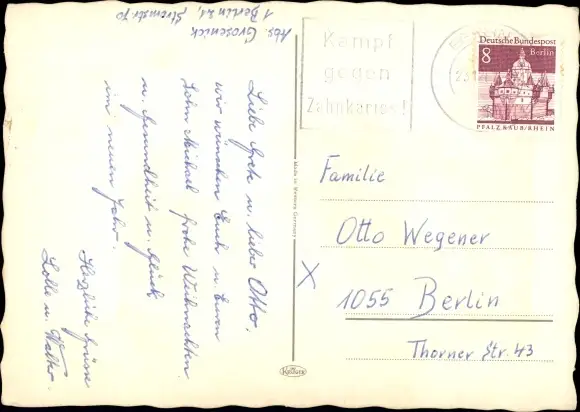 Abs. Grosenick
1 Berlin 21, Stromstr. 70
Liebe Grete u. lieber Otto.
wir wünschen Euch u. Euren
Sohn Michael frohe Weihnachten
u. Gesundheit u. Glück
im neuen Jahr.
Herzliche Grüsse
Lolle u. Walter.
Kampf
gegen
Zahnkaries!
Deutsche Bundespost
8 Berlin
PFALZ KAUB/RHEIN
Familie
Otto Wegener
X
1055 Berlin
Thorner Str. 43
Made in Western Germany
Krüger